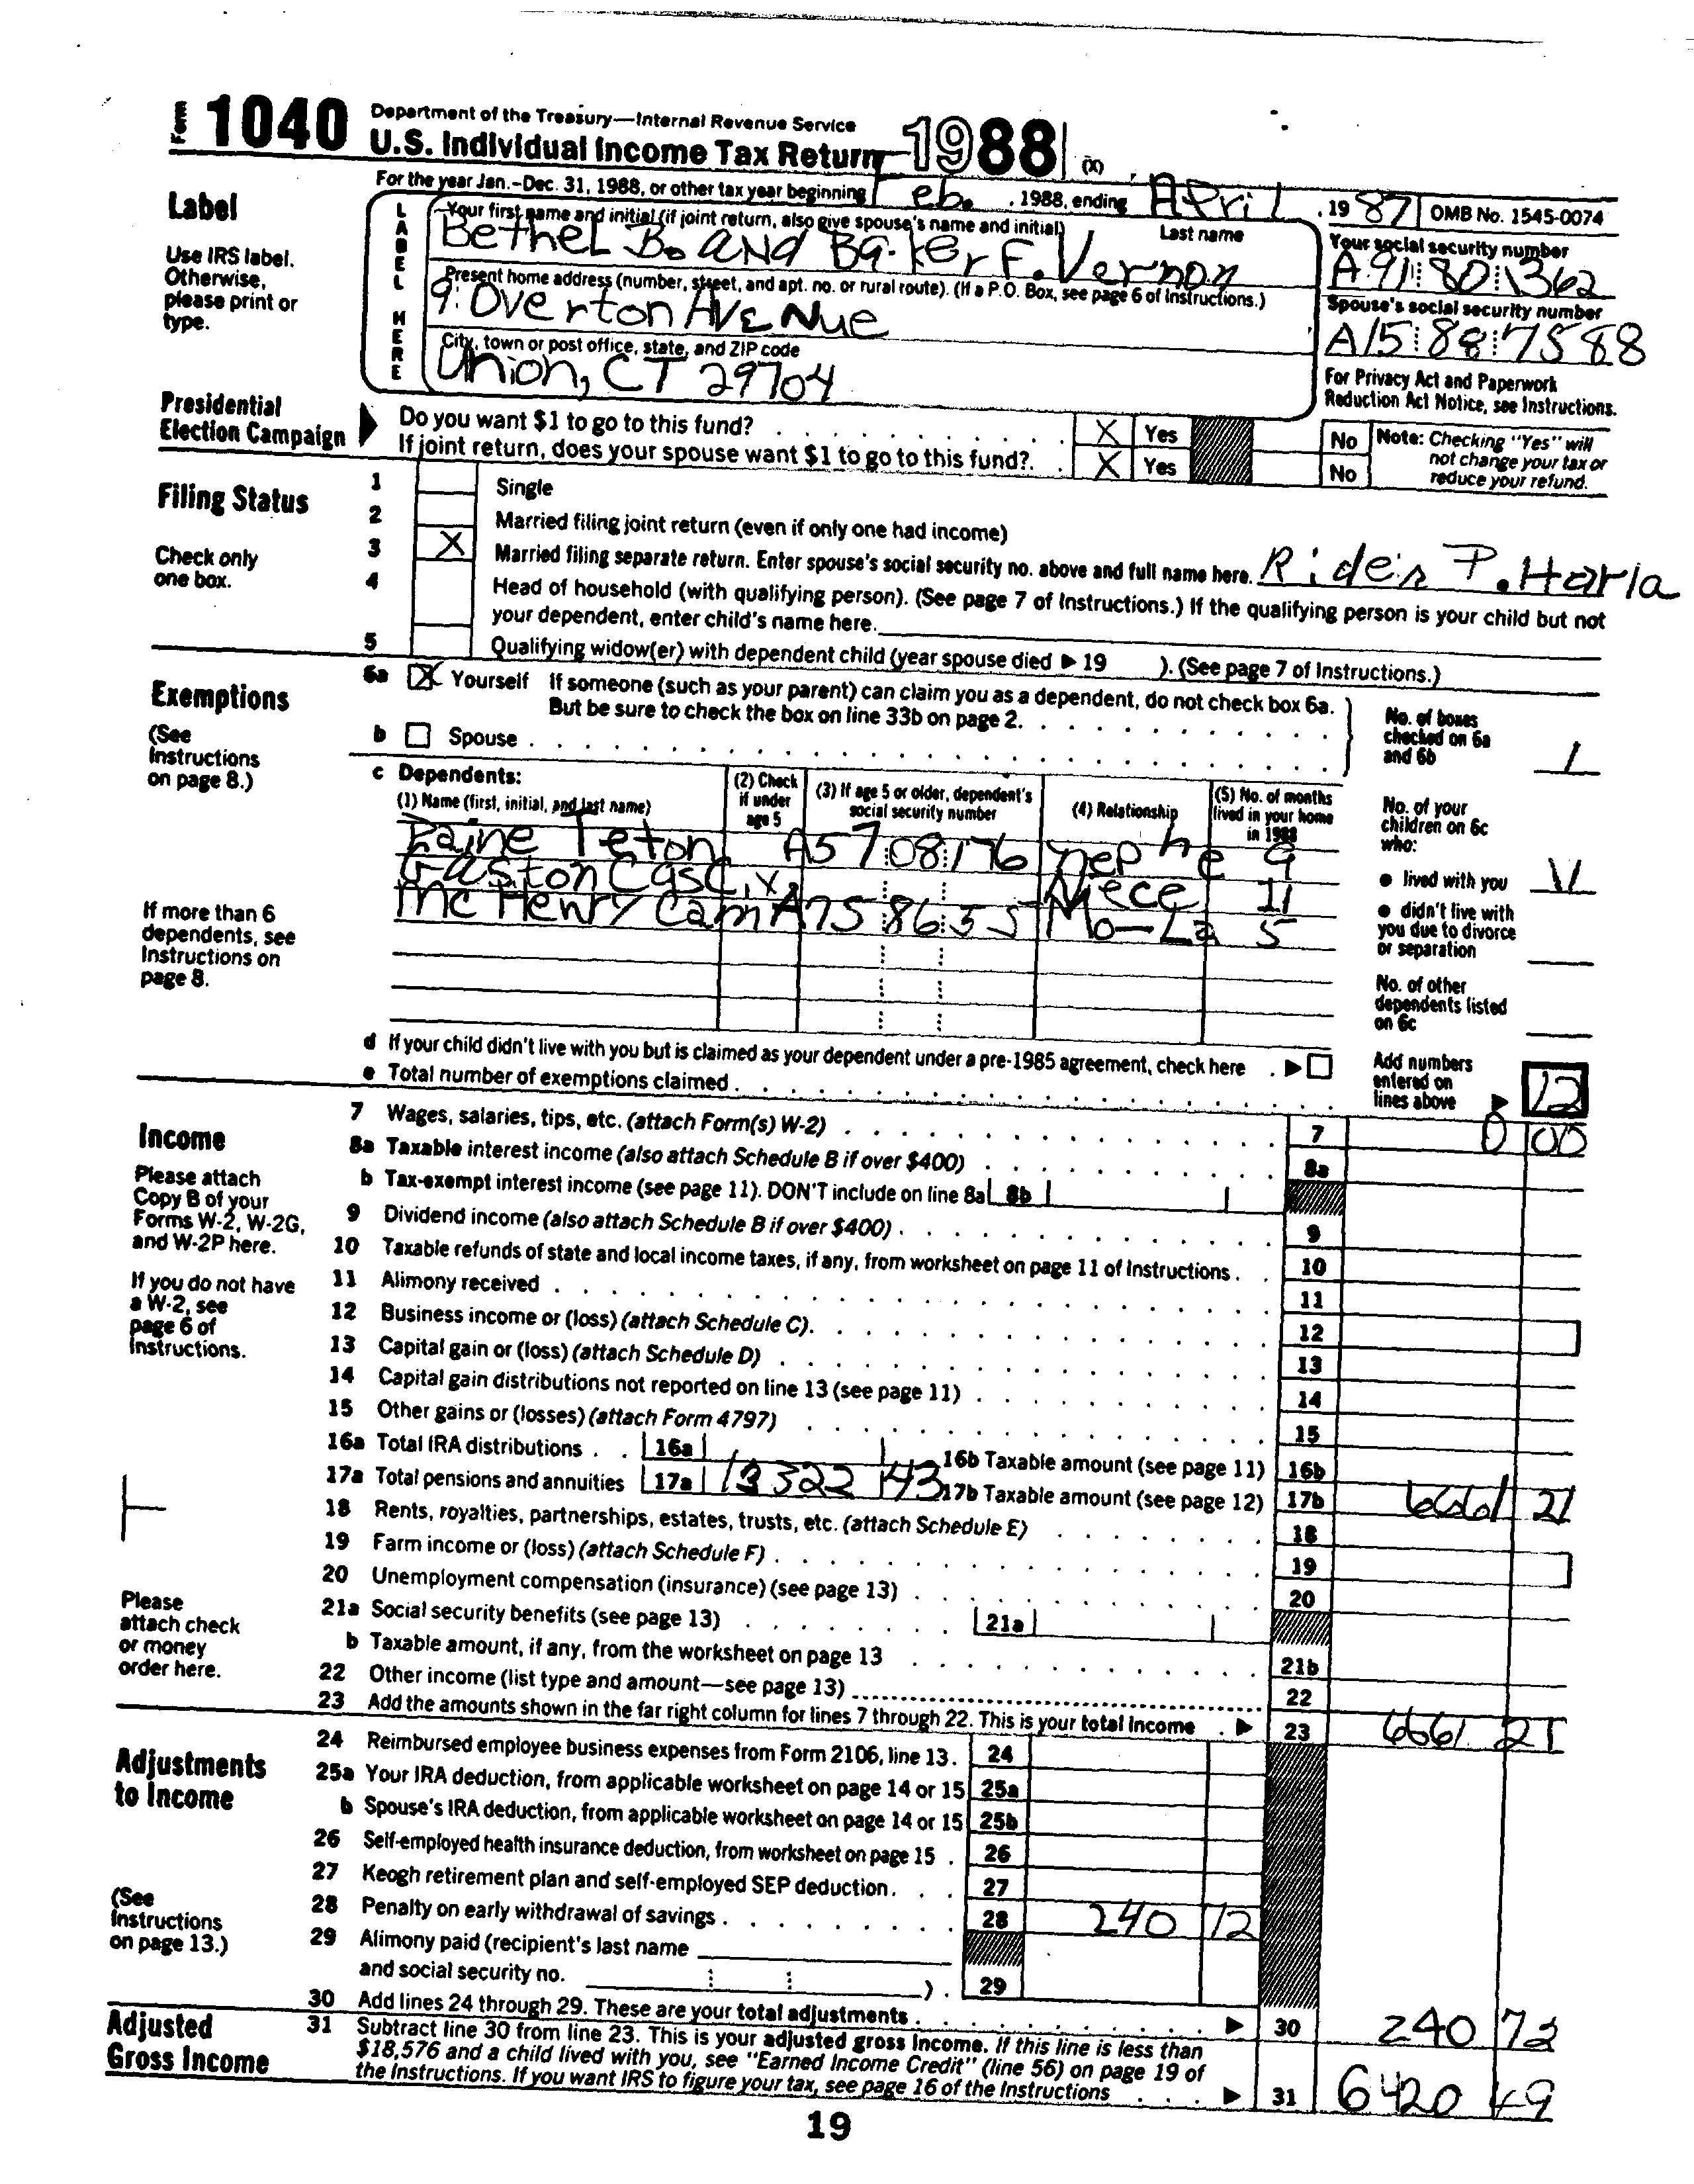 Form 1040 Department of the Treasury—Internal Revenue Service
U.S. Individual Income Tax Return 1988 (X)
For the year Jan.-Dec. 31, 1988, or other tax year beginning Feb. , 1988, ending April , 19 87 OMB No. 1545-0074
Label
Use IRS label. Otherwise, please print or type.
LABEL HERE
Your first name and initial (if joint return, also give spouse's name and initial) Last name
Bethel B. and Baker F. Vernon
Your social security number
A91 80 1362
Present home address (number, street, and apt. no. or rural route). (If a P.O. Box, see page 6 of Instructions.)
9. Overton Avenue
Spouse's social security number
A15 88 7588
City, town or post office, state, and ZIP code
Union, CT 29704
For Privacy Act and Paperwork Reduction Act Notice, see Instructions.
Presidential Election Campaign
Do you want $1 to go to this fund? X Yes No
If joint return, does your spouse want $1 to go to this fund? X Yes No
Note: Checking "Yes" will not change your tax or reduce your refund.
Filing Status
Check only one box.
1 Single
2 Married filing joint return (even if only one had income)
3 X Married filing separate return. Enter spouse's social security no. above and full name here. Rider P. Harla
4 Head of household (with qualifying person). (See page 7 of Instructions.) If the qualifying person is your child but not
your dependent, enter child's name here.
5 Qualifying widow(er) with dependent child (year spouse died ▶ 19 ). (See page 7 of Instructions.)
Exemptions
(See Instructions on page 8.)
6a X Yourself If someone (such as your parent) can claim you as a dependent, do not check box 6a.
But be sure to check the box on line 33b on page 2.
b Spouse
No. of boxes checked on 6a and 6b 1
c Dependents:
(1) Name (first, initial, and last name) (2) Check if under age 5 (3) If age 5 or older, dependent's social security number (4) Relationship (5) No. of months lived in your home in 1988
Paine Teton A57 08 176 nephe 9
Gaston Casc, x Niece 11
McHenry Cam A75 86 35 Mo-La 5
If more than 6 dependents, see Instructions on page 8.
No. of your children on 6c who:
● lived with you 11
● didn't live with you due to divorce or separation
No. of other dependents listed on 6c
d If your child didn't live with you but is claimed as your dependent under a pre-1985 agreement, check here ▶
e Total number of exemptions claimed
Add numbers entered on lines above ▶ 12
Income
Please attach Copy B of your Forms W-2, W-2G, and W-2P here.
If you do not have a W-2, see page 6 of Instructions.
Please attach check or money order here.
7 Wages, salaries, tips, etc. (attach Form(s) W-2) 7 0 00
8a Taxable interest income (also attach Schedule B if over $400) 8a
b Tax-exempt interest income (see page 11). DON'T include on line 8a 8b
9 Dividend income (also attach Schedule B if over $400) 9
10 Taxable refunds of state and local income taxes, if any, from worksheet on page 11 of Instructions 10
11 Alimony received 11
12 Business income or (loss) (attach Schedule C) 12
13 Capital gain or (loss) (attach Schedule D) 13
14 Capital gain distributions not reported on line 13 (see page 11) 14
15 Other gains or (losses) (attach Form 4797) 15
16a Total IRA distributions 16a 16b Taxable amount (see page 11) 16b
17a Total pensions and annuities 17a 13322 43 17b Taxable amount (see page 12) 17b 6661 21
18 Rents, royalties, partnerships, estates, trusts, etc. (attach Schedule E) 18
19 Farm income or (loss) (attach Schedule F) 19
20 Unemployment compensation (insurance) (see page 13) 20
21a Social security benefits (see page 13) 21a
b Taxable amount, if any, from the worksheet on page 13 21b
22 Other income (list type and amount—see page 13) 22
23 Add the amounts shown in the far right column for lines 7 through 22. This is your total income ▶ 23 6661 21
Adjustments to Income
(See Instructions on page 13.)
24 Reimbursed employee business expenses from Form 2106, line 13. 24
25a Your IRA deduction, from applicable worksheet on page 14 or 15 25a
b Spouse's IRA deduction, from applicable worksheet on page 14 or 15 25b
26 Self-employed health insurance deduction, from worksheet on page 15 26
27 Keogh retirement plan and self-employed SEP deduction 27
28 Penalty on early withdrawal of savings 28 240 72
29 Alimony paid (recipient's last name
and social security no. ) 29
30 Add lines 24 through 29. These are your total adjustments ▶ 30 240 72
Adjusted Gross Income
31 Subtract line 30 from line 23. This is your adjusted gross income. If this line is less than
$18,576 and a child lived with you, see "Earned Income Credit" (line 56) on page 19 of
the Instructions. If you want IRS to figure your tax, see page 16 of the Instructions ▶ 31 6420 49
19